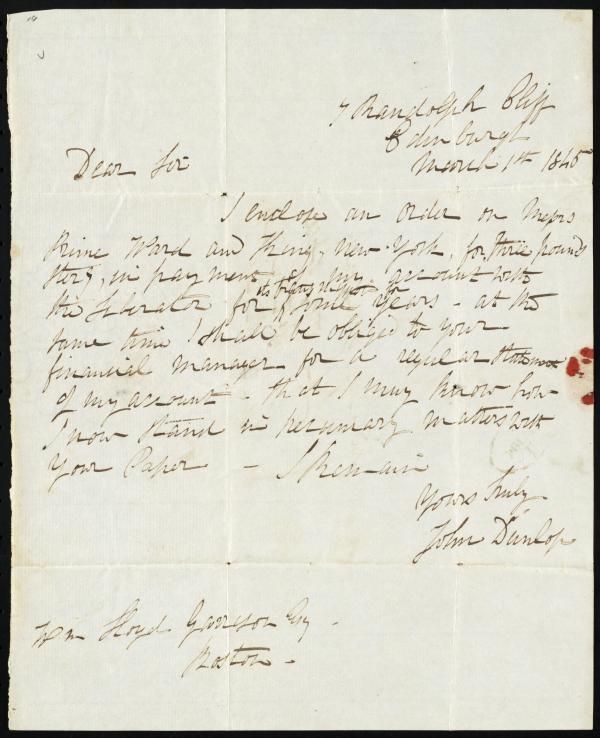 7 Randolph Cliff
Edinburgh
March 1st 1845
Dear Sir
I enclose an order on Messrs
Prime Ward and King, New York, for three pounds
sterg, in payment of my account with
the Liberator for some years - at the
same time I shall be obliged to your
financial manager for a regular statement
of my account - that I may know how
I now stand in pecuniary matters with
your Paper - I Remain
Yours truly
John Dunlop
Wm Lloyd Garrison Esq -
Boston -